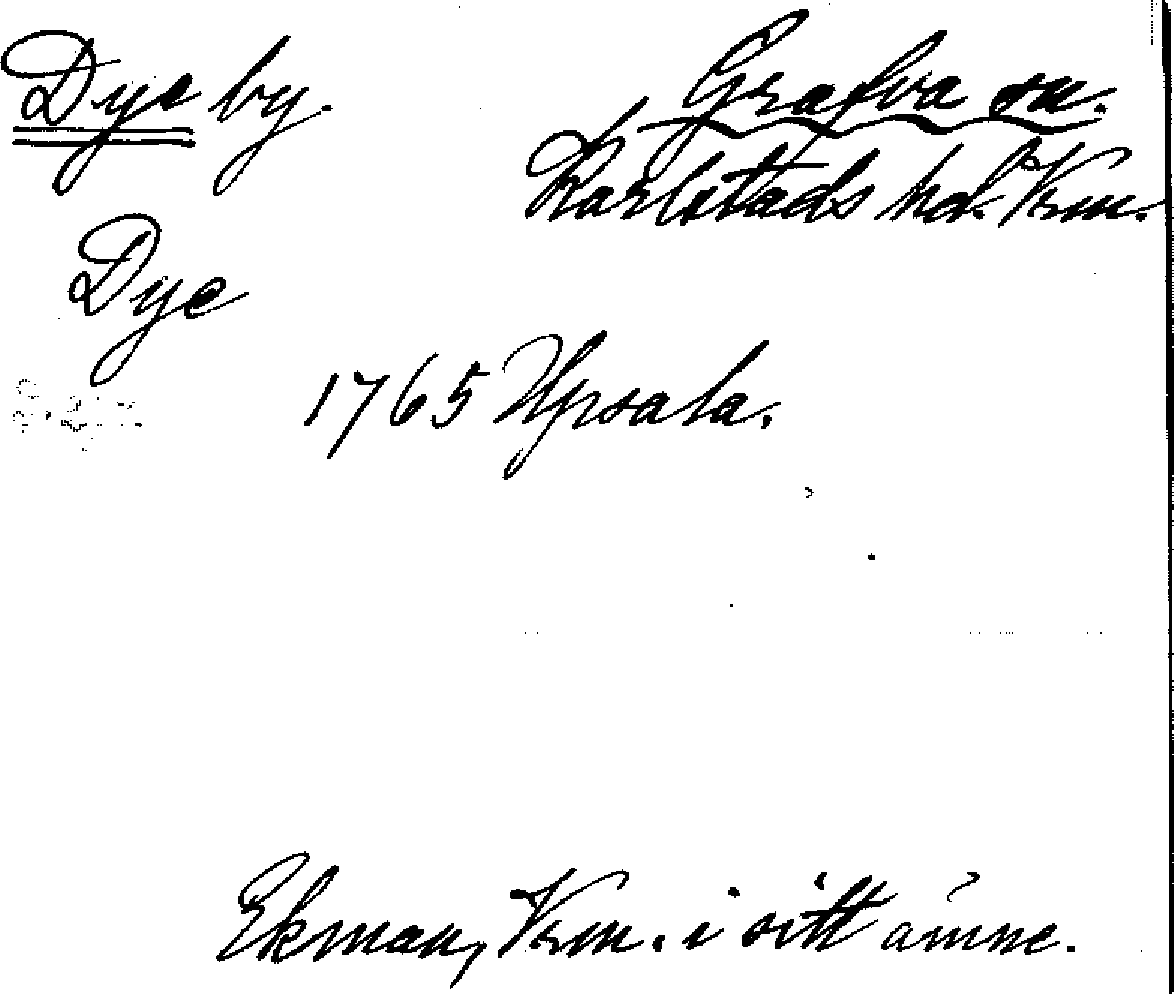 Dye by.
Grafva sn.
Karlstads hd. Vrm.
Dye
1765 Upsala.
Ekman, Vrm. i sitt ämne.